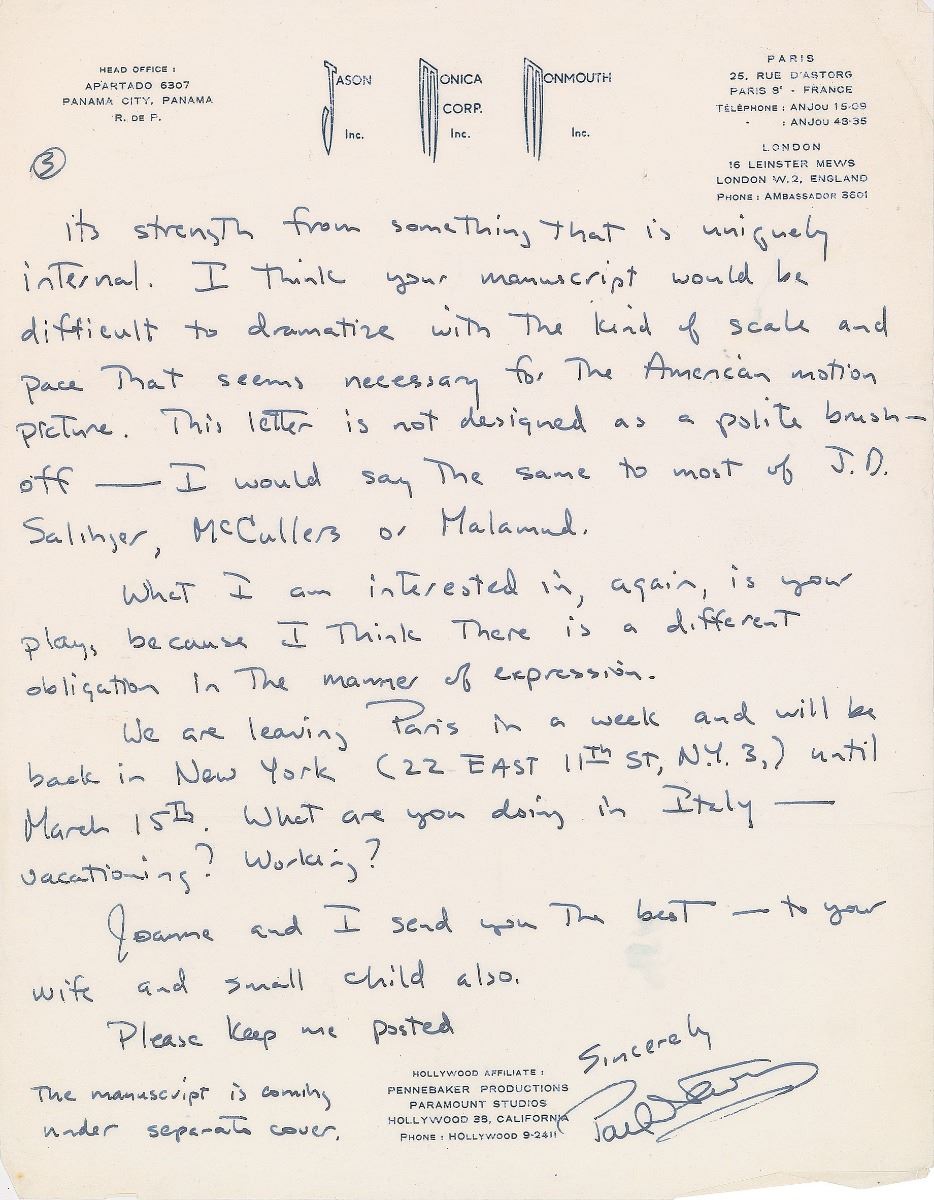 HEAD OFFICE :
APARTADO 6307
PANAMA CITY, PANAMA
R. DE P.
JASON
Inc.
MONICA
CORP.
Inc.
MONMOUTH
Inc.
PARIS
25, RUE D'ASTORG
PARIS 8e - FRANCE
TÉLÉPHONE : ANJOU 15-09
- : ANJOU 43-35
LONDON
16 LEINSTER MEWS
LONDON W.2, ENGLAND
PHONE : AMBASSADOR 3601
3
its strength from something that is uniquely
internal. I think your manuscript would be
difficult to dramatize with the kind of scale and
pace that seems necessary for the American motion
picture. This letter is not designed as a polite brush-
off — I would say the same to most of J.D.
Salinger, McCullers or Malamud.
What I am interested in, again, is your
play, because I think there is a different
obligation in the manner of expression.
We are leaving Paris in a week and will be
back in New York (22 EAST 11th ST, N.Y. 3,) until
March 15th. What are you doing in Italy —
vacationing? Working?
Joanne and I send you the best — to your
wife and small child also.
Please keep me posted
Sincerely
Paul Newman
The manuscript is coming
under separate cover.
HOLLYWOOD AFFILIATE :
PENNEBAKER PRODUCTIONS
PARAMOUNT STUDIOS
HOLLYWOOD 38, CALIFORNIA
PHONE : HOLLYWOOD 9-2411